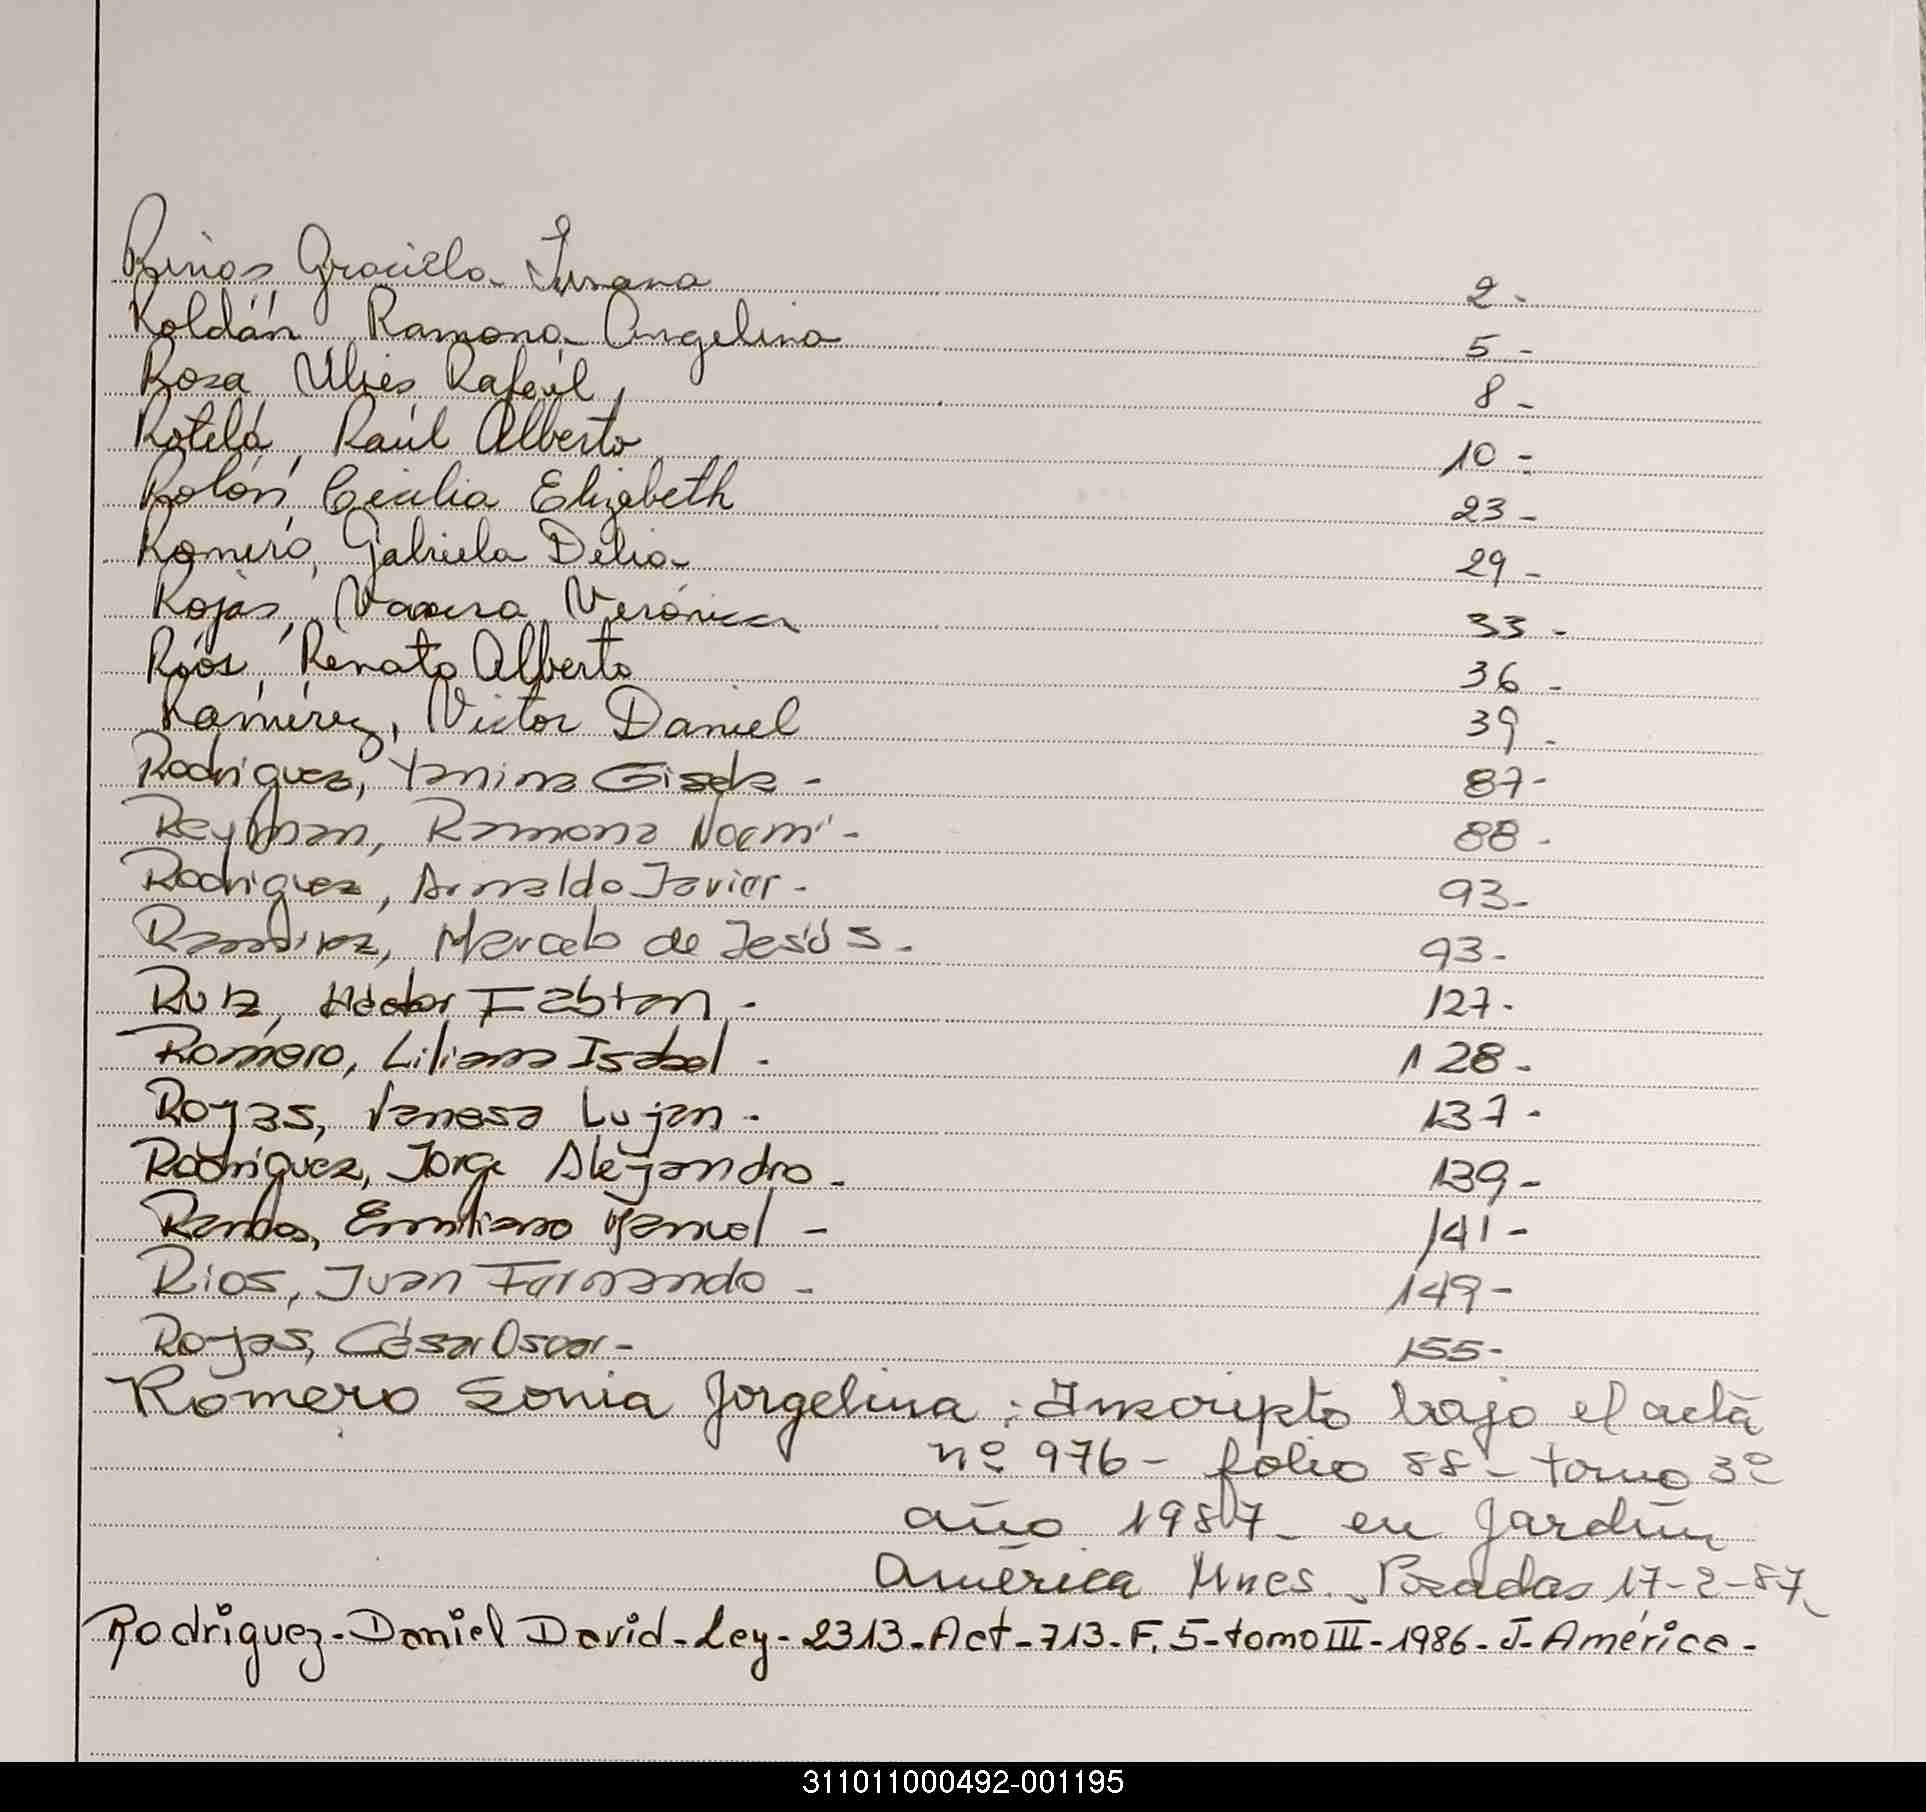 Graciela Susana 2-
Roldán, Ramona Angelina 5-
Roza, Ulises Rafael, 8-
Rotela, Raúl Alberto 10-
Rolón, Cecilia Elizabeth 23-
Romero, Gabriela Delia 29-
Rojas, Verónica 33-
Ríos, Renato Alberto 36-
Ramírez, Victor Daniel 39-
Rodriguez, Yanina Gisela - 87-
Reyman, Ramona Noemí - 88-
Rodriguez, Arnaldo Javier - 93-
Ramirez, Marcelo de Jesús - 93-
Ruiz, Héctor Fabian - 127-
Romero, Liliana Isabel - 128-
Rojas, Vanesa Lujan - 137-
Rodriguez, Jorge Alejandro - 139-
Ramos, Emiliano Manuel - 141-
Rios, Juan Fernando - 149-
Rojas, César Oscar - 155-
Romero Sonia Jorgelina : Inscripto bajo el acta
nº 976 - folio 88 - tomo 3º
año 1987 - en Jardín
América Mnes. Posadas 17-2-87
Rodriguez - Daniel David - Ley - 2313 - Act - 713 - F. 5 - tomo III - 1986 - J. América -
311011000492-001195